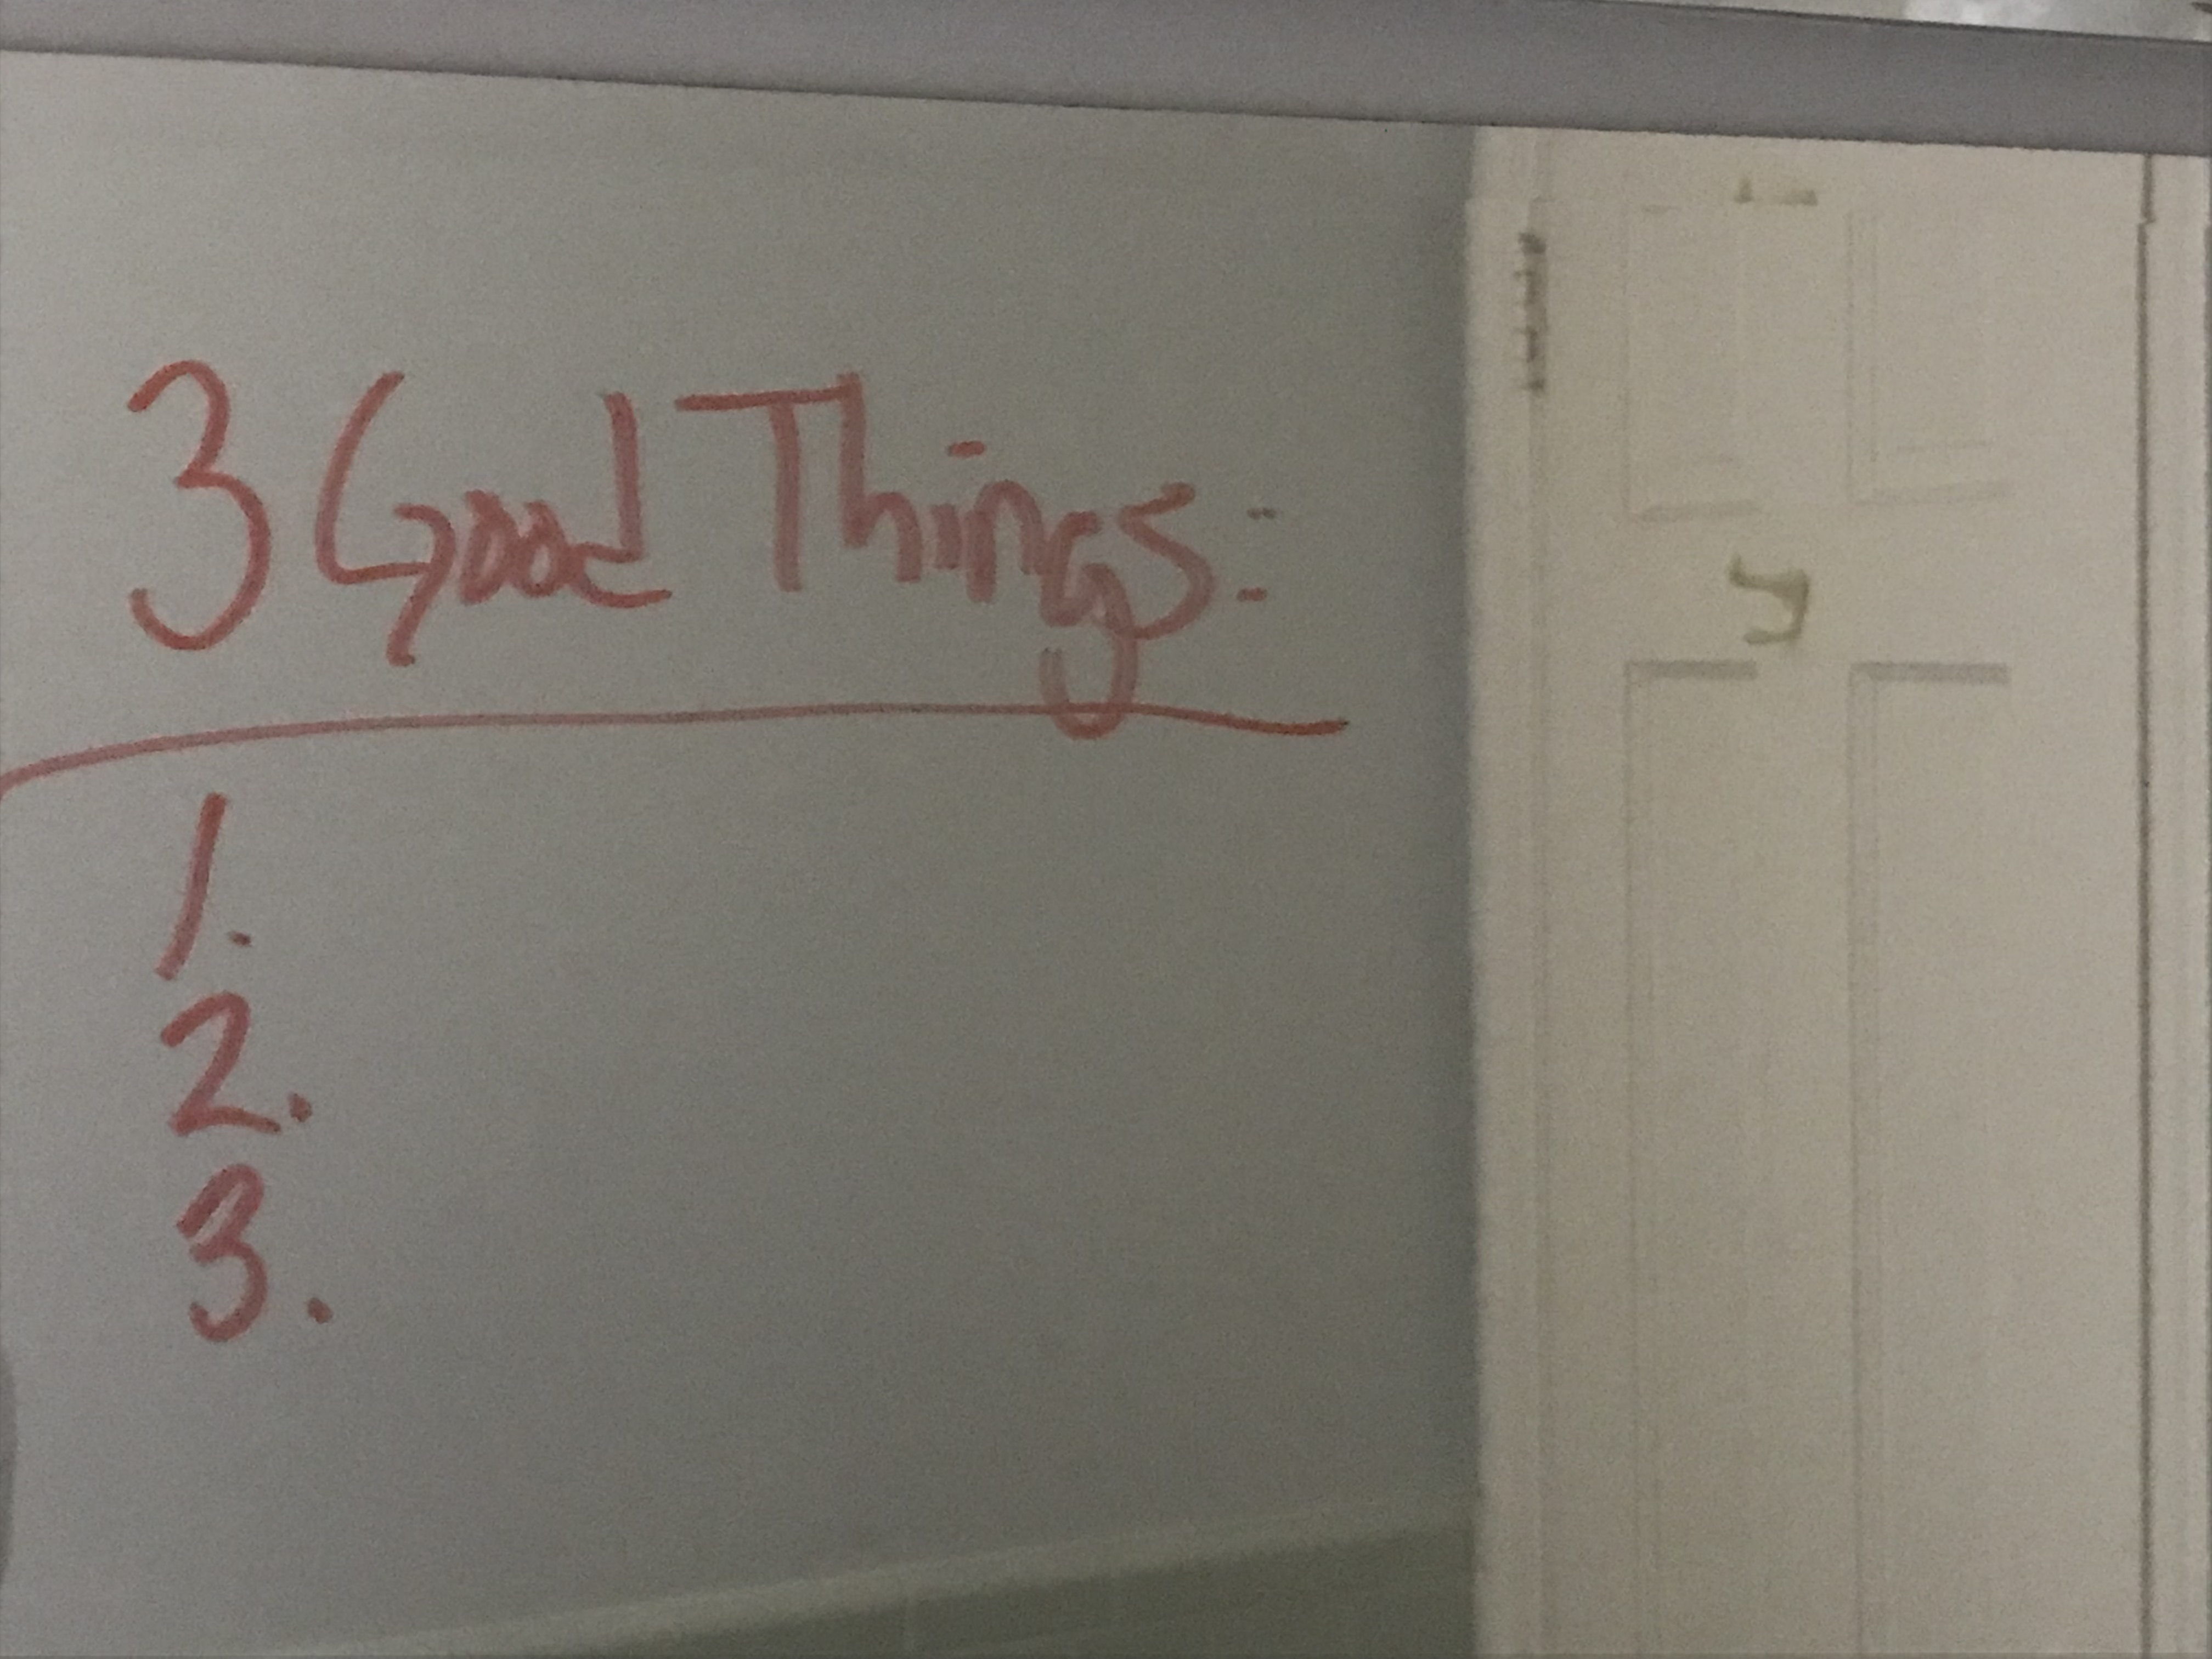 3 Good Things:
1.
2.
3.